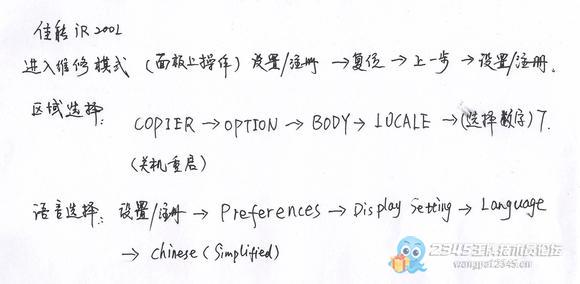 佳能 iR 2002
进入维修模式 (面板上操作) 设置/注册 → 复位 → 上一步 → 设置/注册.
区域选择: COPIER → OPTION → BODY → LOCALE → (选择数字) 7.
(关机重启)
语言选择: 设置/注册 → Preferences → Display Setting → Language
→ Chinese (Simplified)
2345王牌技术员论坛
wangpai2345.cn